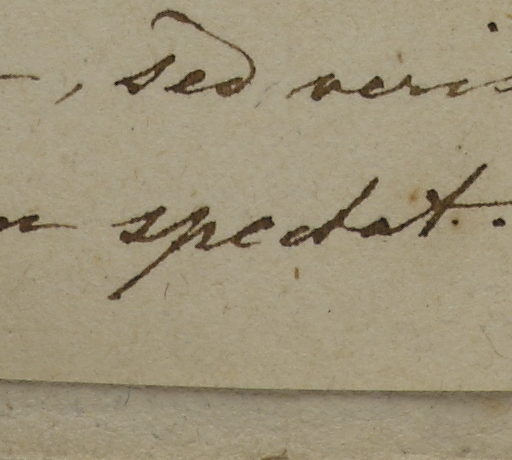 , sed veris
spectat.